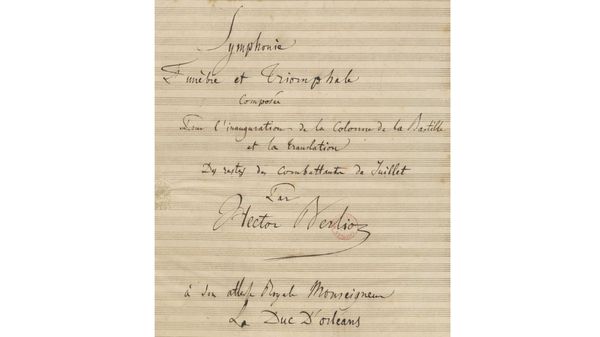 Symphonie
Funèbre et Triomphale
composée
Pour l'inauguration de la Colonne de la Bastille
et la translation
Des restes des combattants de Juillet
Par
Hector Berlioz
à son altesse Royale Monseigneur
Le Duc D'orléans